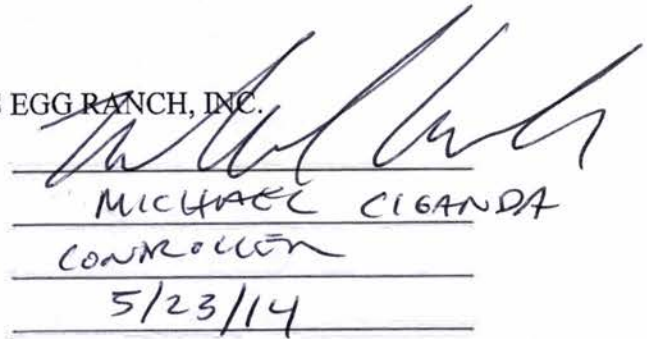 EGG RANCH, INC.
MICHAEL CIGANDA
CONTROLLER
5/23/14